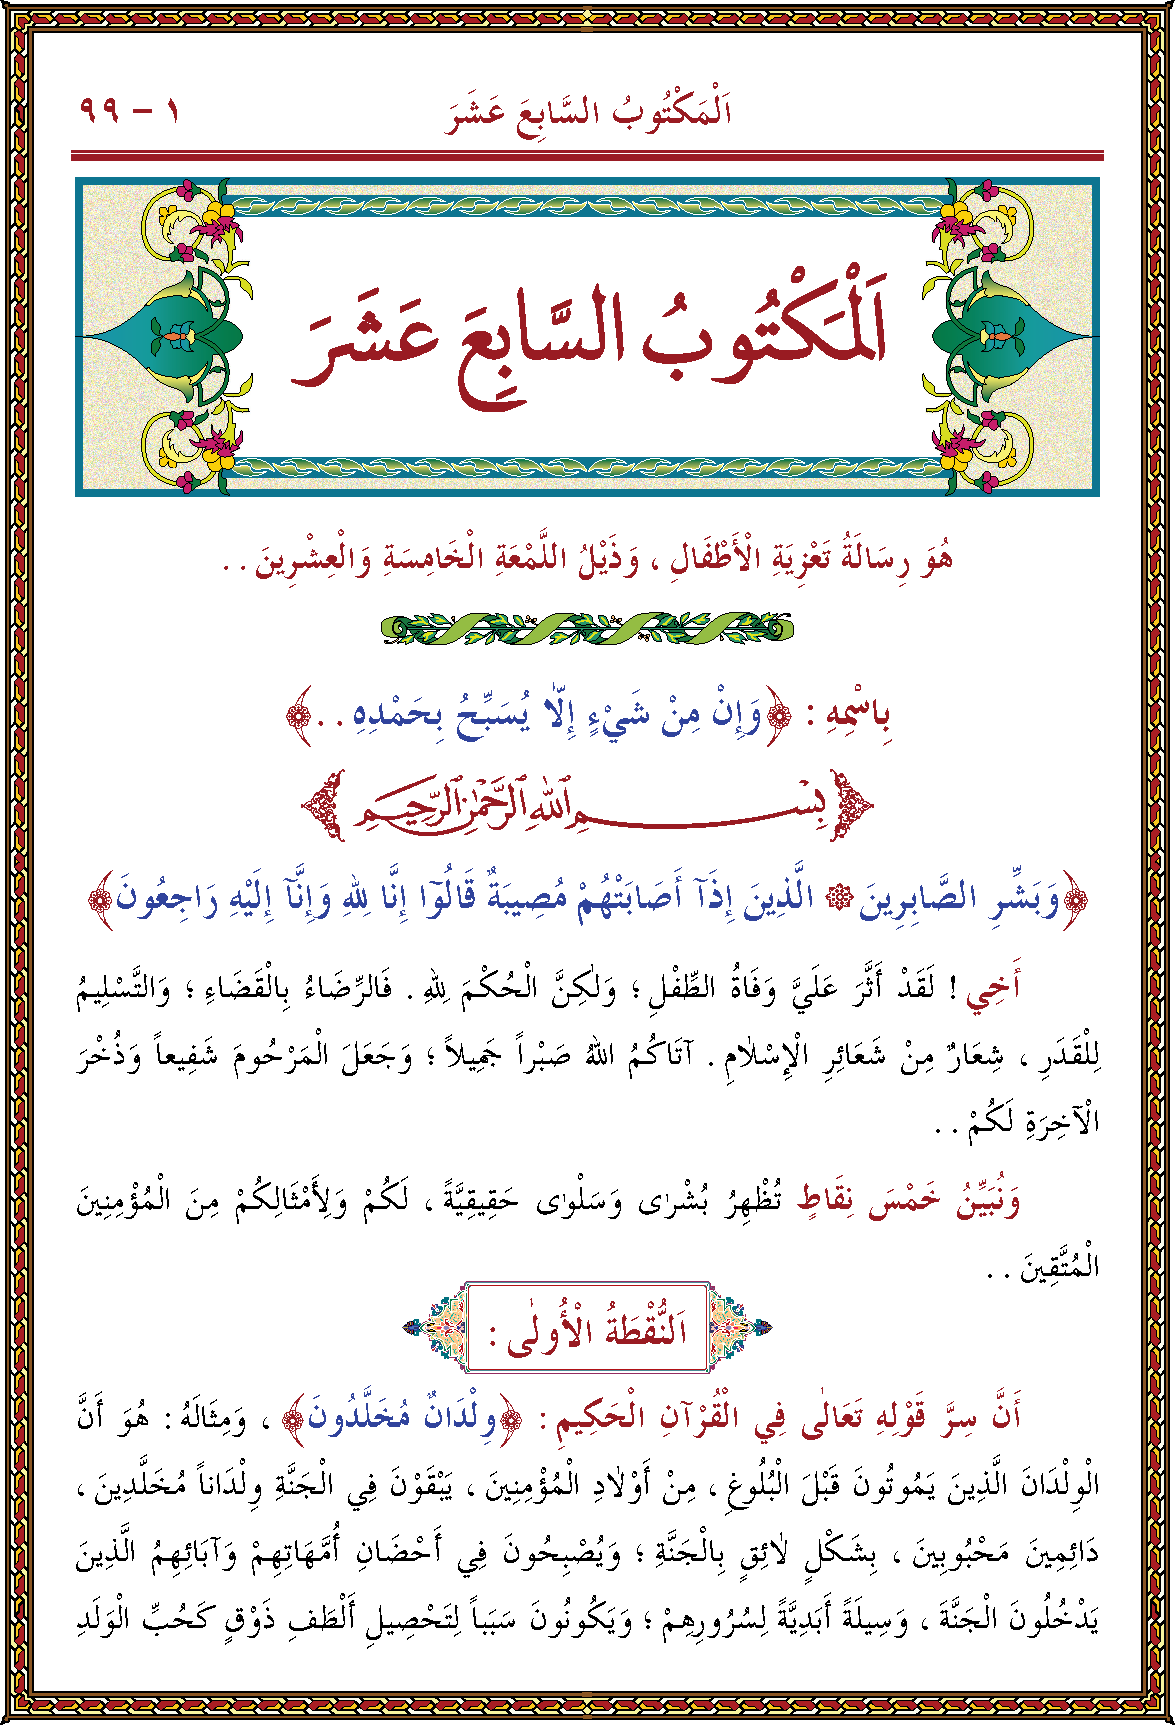 اَلْمَكْتُوبُ السَّابِعَ عَشَرَ
١ – ٩٩
اَلْمَكْتُوبُ السَّابِعَ عَشَرَ
هُوَ رِسَالَةُ تَعْزِيَةِ الْأَطْفَالِ ، وَذَيْلُ اللَّمْعَةِ الْخَامِسَةِ وَالْعِشْرِينَ . .
بِاسْمِهِ : ﴿وَإِنْ مِنْ شَيْءٍ إِلَّا يُسَبِّحُ بِحَمْدِهِ . . ﴾
بِسْمِ ٱللهِ ٱلرَّحْمٰنِ ٱلرَّحِيمِ
﴿وَبَشِّرِ الصَّابِرِينَ ۞ الَّذِينَ إِذَآ أَصَابَتْهُمْ مُصِيبَةٌ قَالُوٓا إِنَّا لِلهِ وَإِنَّآ إِلَيْهِ رَاجِعُونَ﴾
أَخِي ! لَقَدْ أَثَّرَ عَلَيَّ وَفَاةُ الطِّفْلِ ؛ وَلٰكِنَّ الْحُكْمَ لِلهِ . فَالرِّضَاءُ بِالْقَضَاءِ ؛ وَالتَّسْلِيمُ
لِلْقَدَرِ ، شِعَارٌ مِنْ شَعَائِرِ الْإِسْلَامِ . آتَاكُمُ اللهُ صَبْراً جَمِيلاً ؛ وَجَعَلَ الْمَرْحُومَ شَفِيعاً وَذُخْرَ
الْآخِرَةِ لَكُمْ . .
وَنُبَيِّنُ خَمْسَ نِقَاطٍ تُظْهِرُ بُشْرٰى وَسَلْوٰى حَقِيقِيَّةً ، لَكُمْ وَلِأَمْثَالِكُمْ مِنَ الْمُؤْمِنِينَ
الْمُتَّقِينَ . .
اَلنُّقْطَةُ الْأُولٰى :
أَنَّ سِرَّ قَوْلِهِ تَعَالٰى فِي الْقُرْآنِ الْحَكِيمِ : ﴿وِلْدَانٌ مُخَلَّدُونَ﴾ ، وَمِثَالَهُ : هُوَ أَنَّ
الْوِلْدَانَ الَّذِينَ يَمُوتُونَ قَبْلَ الْبُلُوغِ ، مِنْ أَوْلَادِ الْمُؤْمِنِينَ ، يَبْقَوْنَ فِي الْجَنَّةِ وِلْدَاناً مُخَلَّدِينَ ،
دَائِمِينَ مَحْبُوبِينَ ، بِشَكْلٍ لَائِقٍ بِالْجَنَّةِ ؛ وَيُصْبِحُونَ فِي أَحْضَانِ أُمَّهَاتِهِمْ وَآبَائِهِمُ الَّذِينَ
يَدْخُلُونَ الْجَنَّةَ ، وَسِيلَةً أَبَدِيَّةً لِسُرُورِهِمْ ؛ وَيَكُونُونَ سَبَباً لِتَحْصِيلِ أَلْطَفِ ذَوْقٍ كَحُبِّ الْوَلَدِ